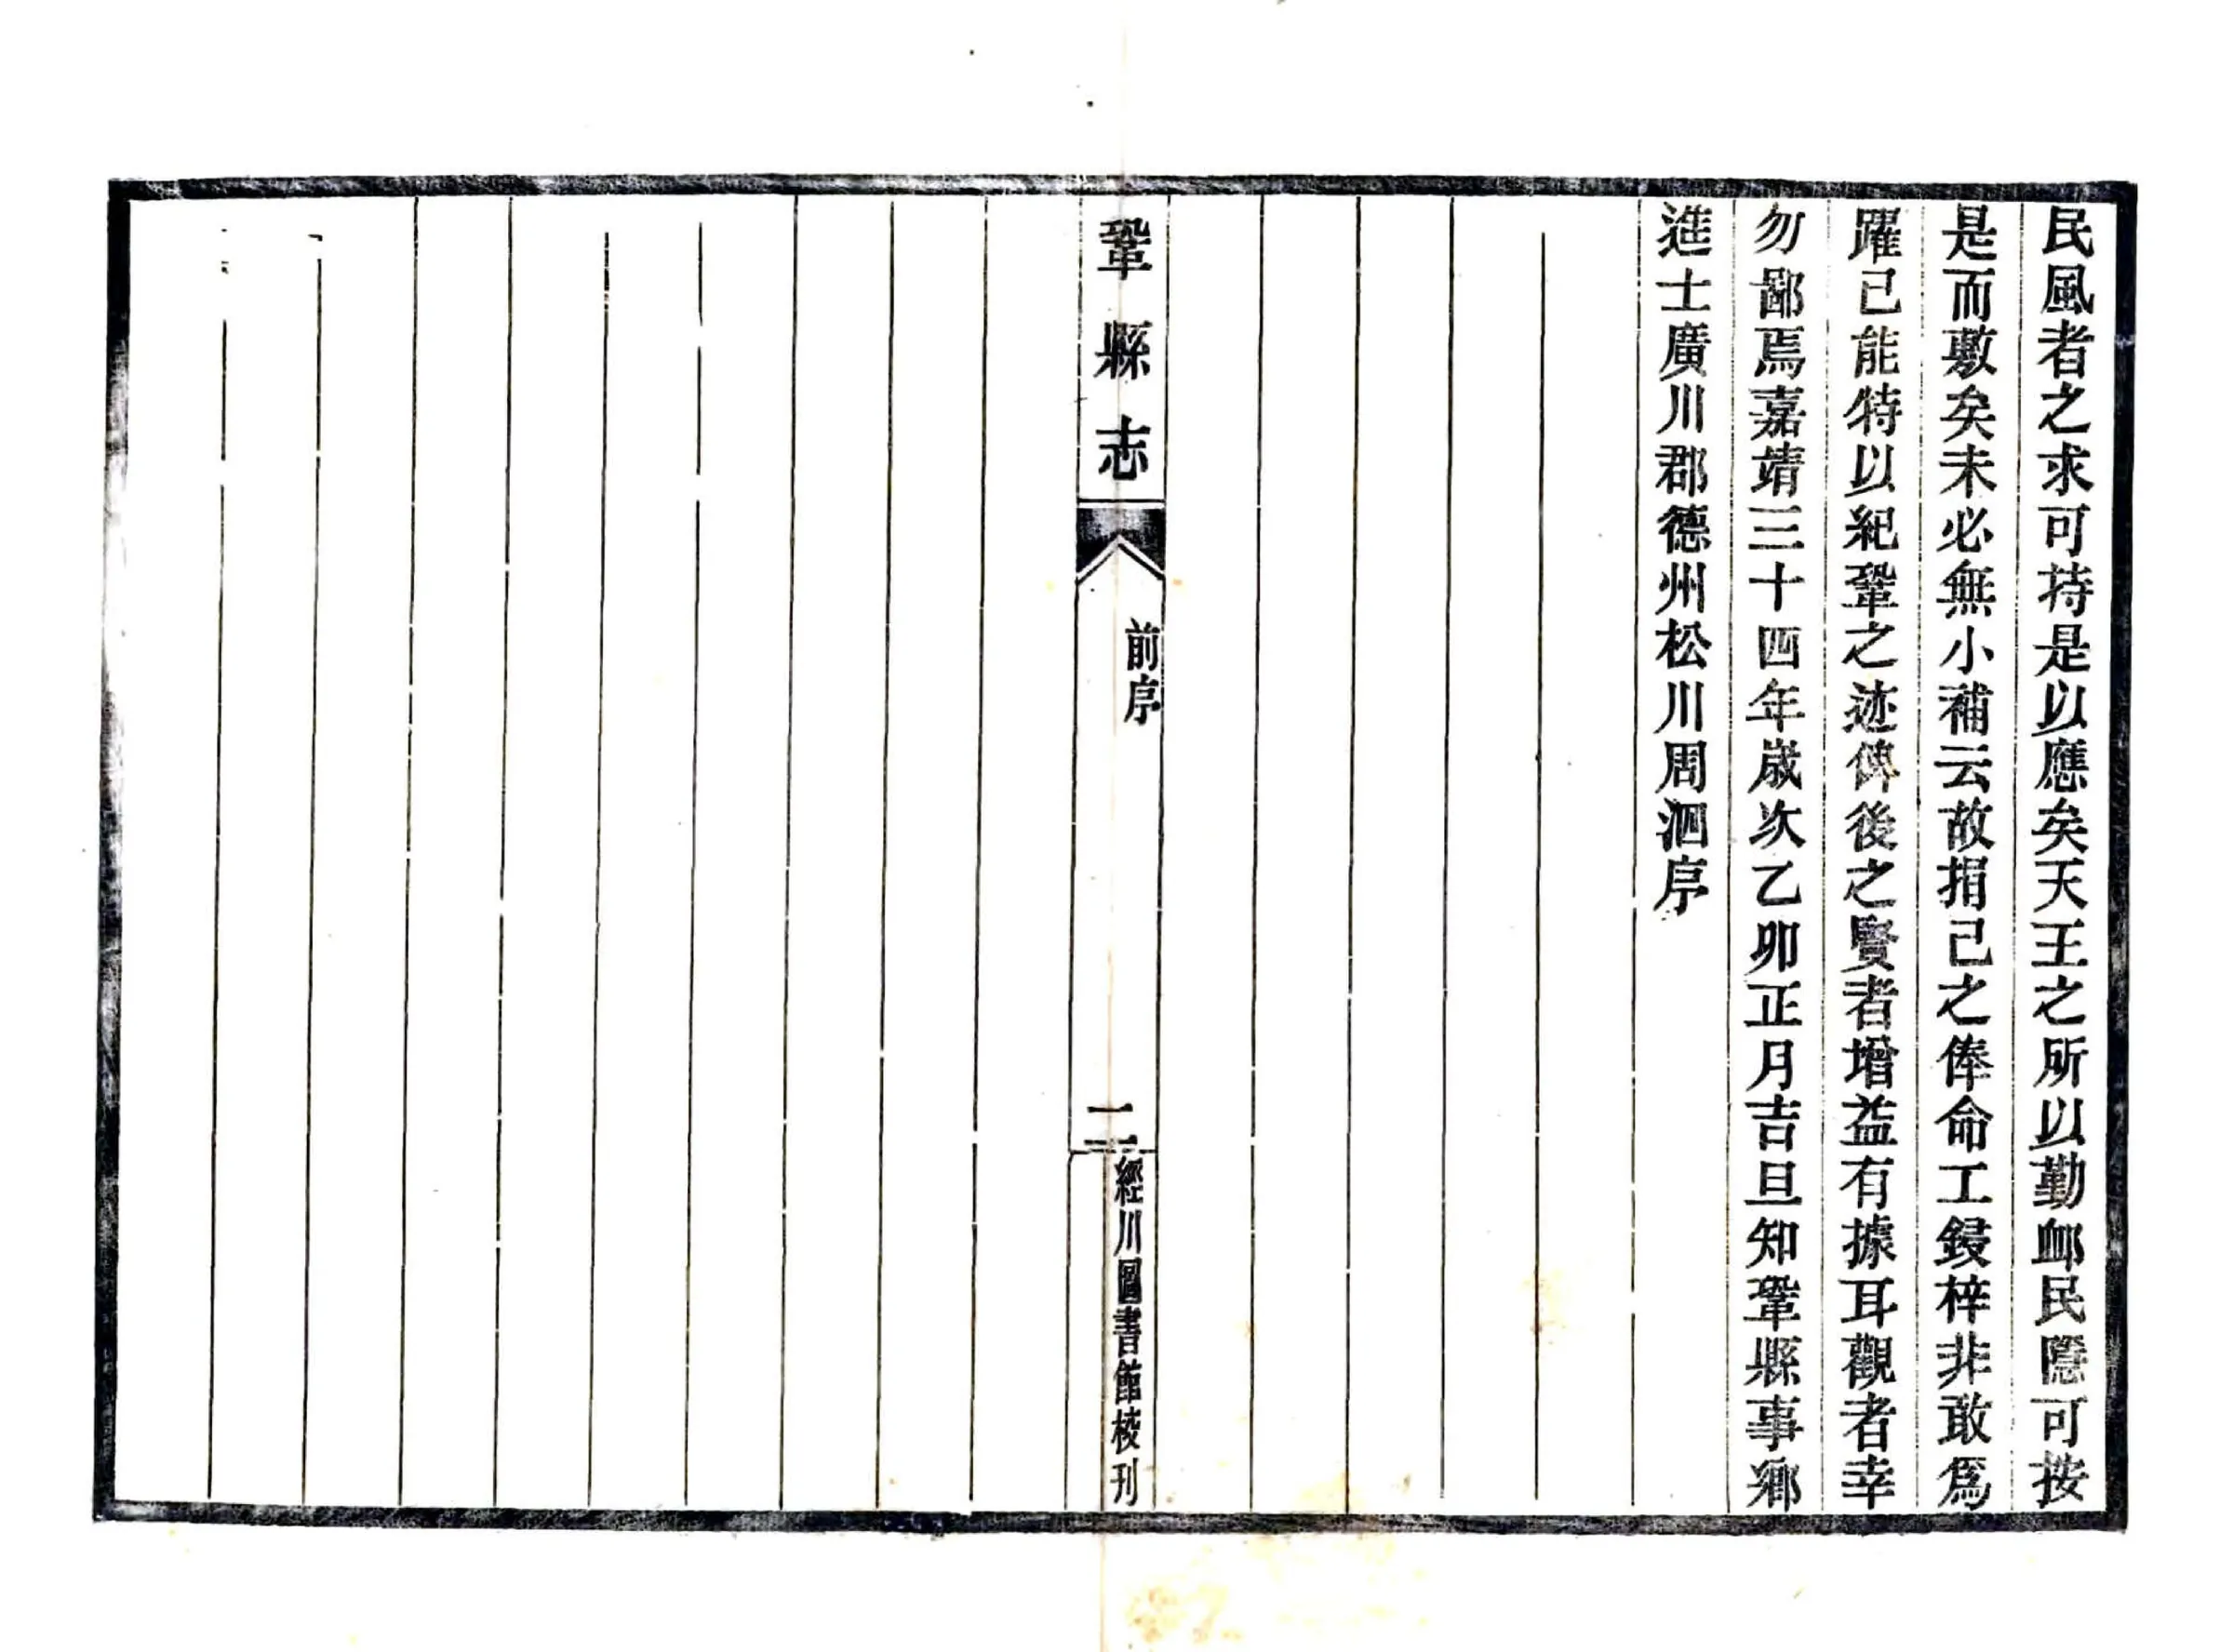 民風者之求可持是以應矣天王之所以勤衈民隱可按
是而敷矣未必無小補云故捐己之俸命工鋟梓非敢爲
躍己能特以紀鞏之迹俾後之賢者增益有據耳觀者幸
勿鄙焉嘉靖三十四年歲次乙卯正月吉旦知鞏縣事鄉
進士廣川郡德州松川周泗序
鞏縣志
前序
二
經川圖書館校刊